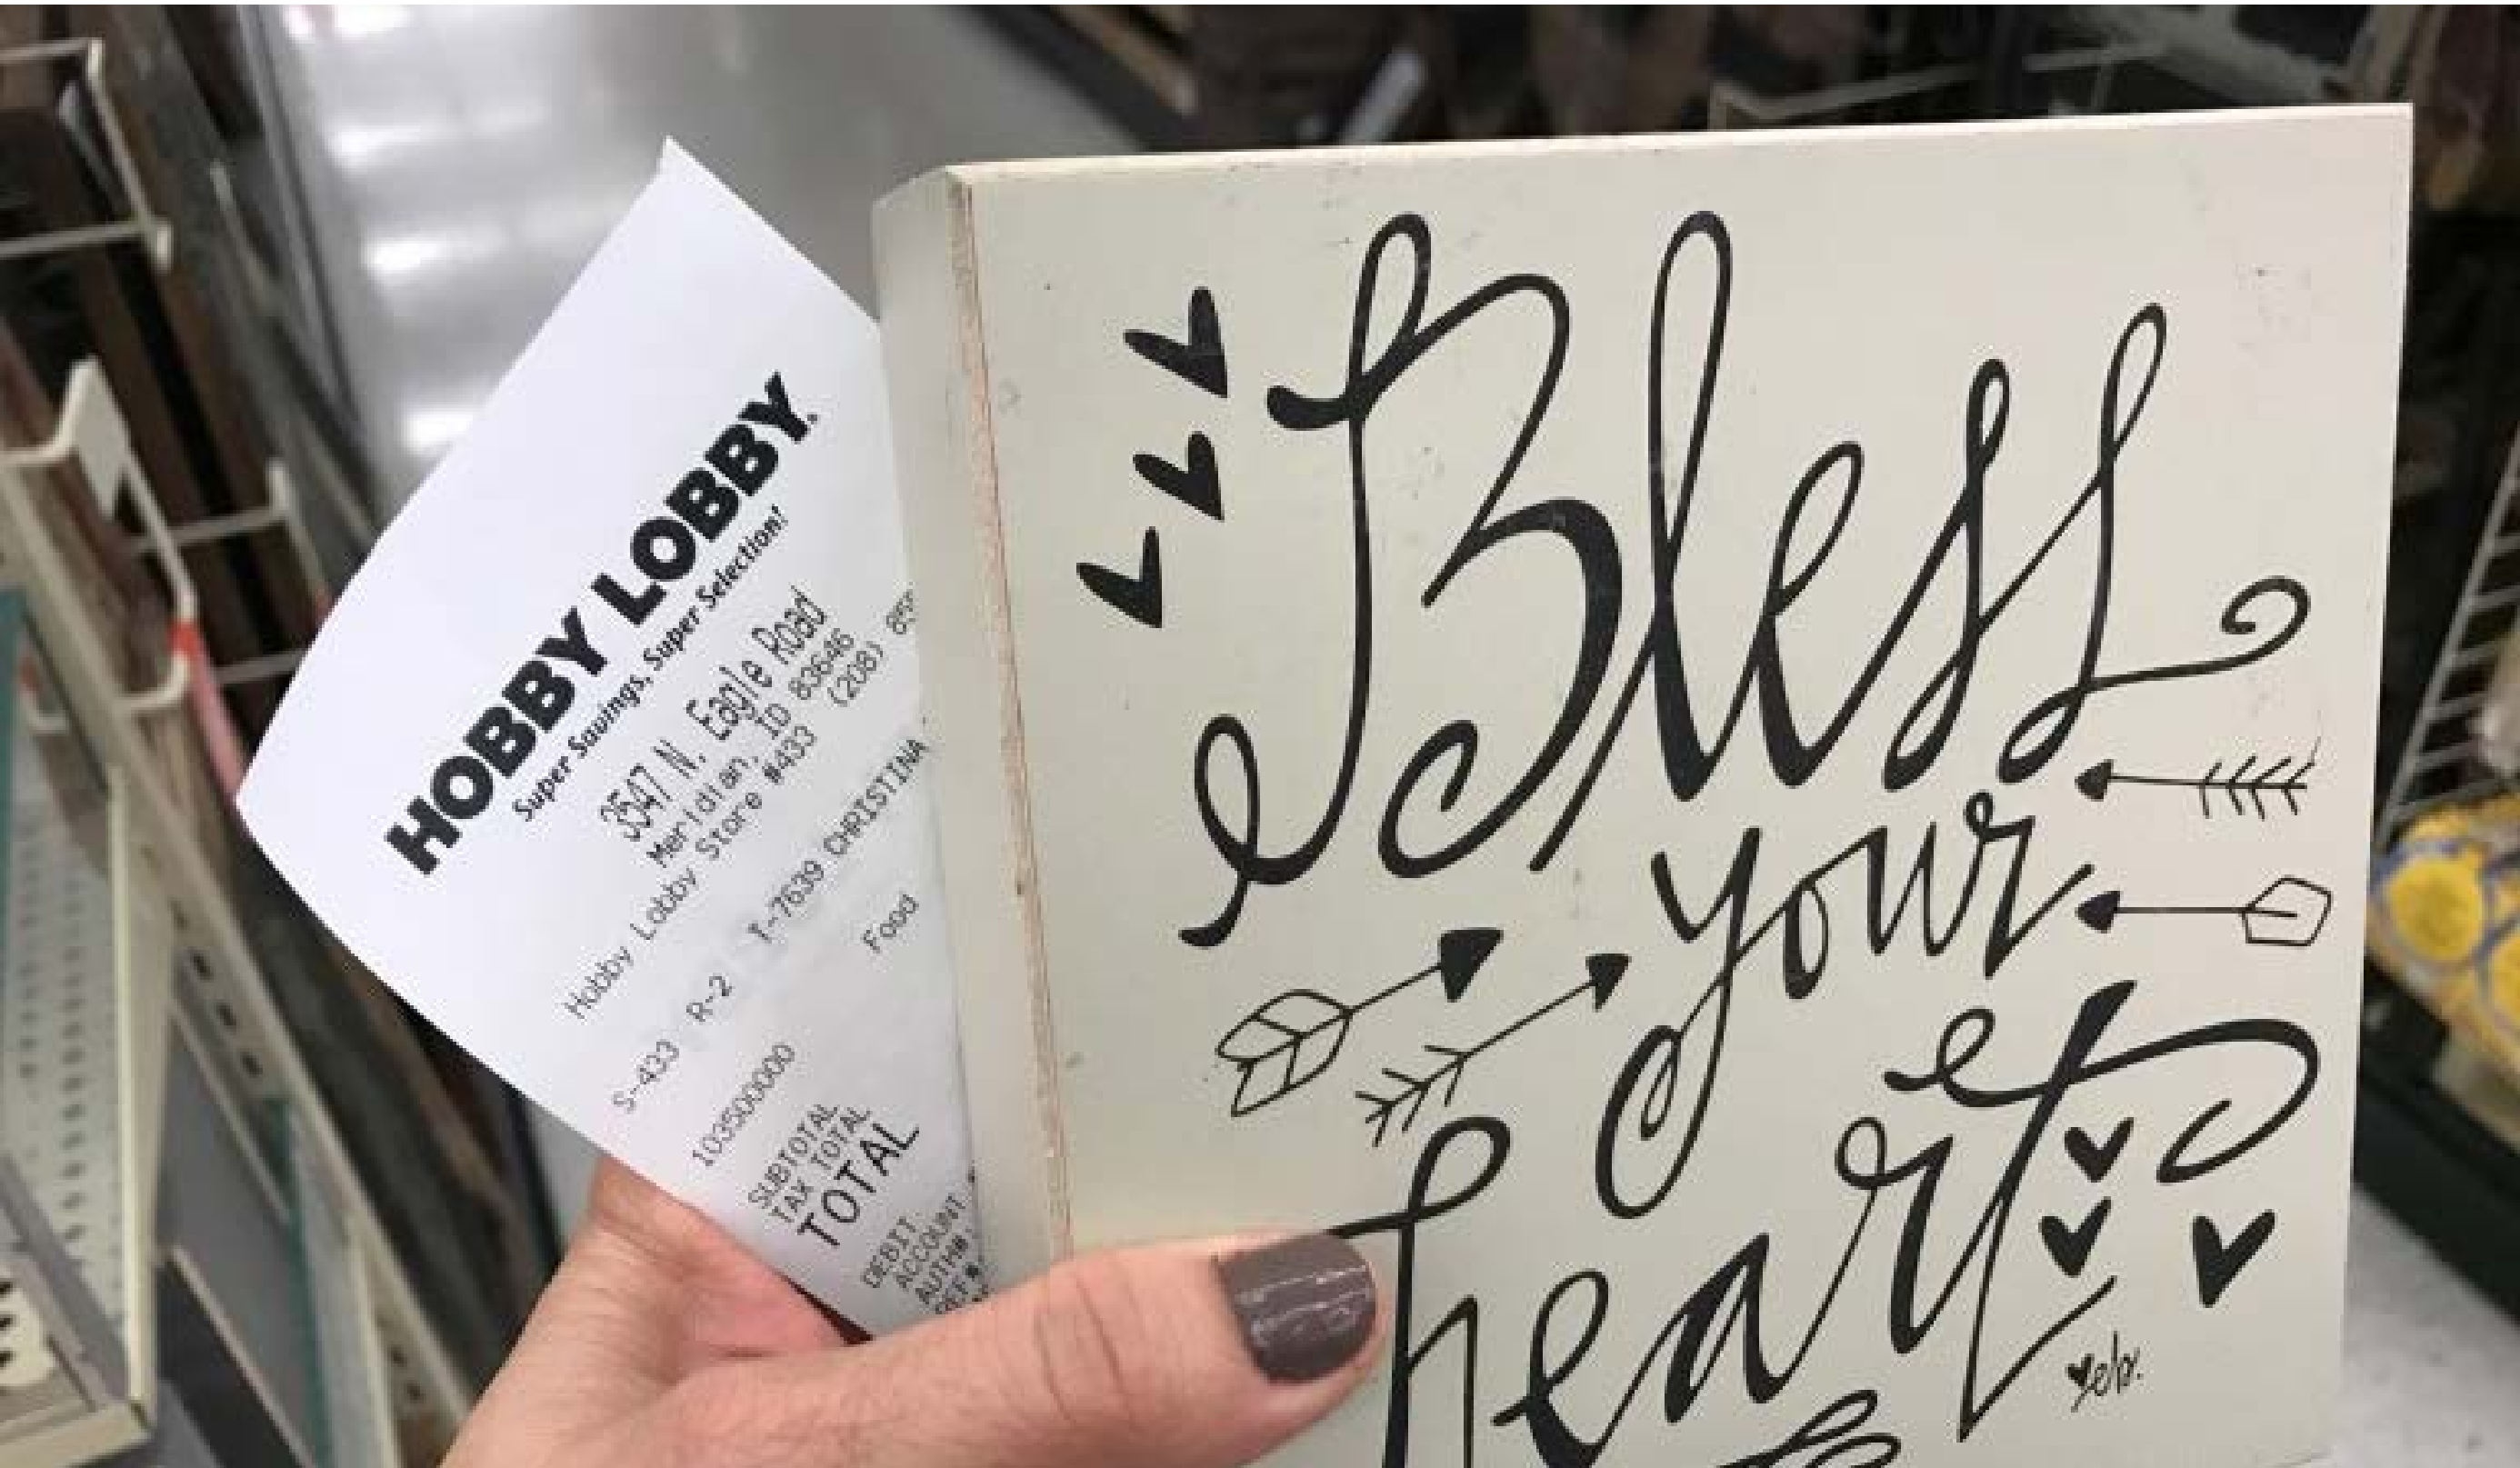 HOBBY LOBBY.
Super Savings, Super Selection!
3547 N. Eagle Road
Meridian, ID 83646
Hobby Lobby Store #433 (208)
S-433 R-2 T-7639 CHRISTINA
Food
103500000
SUBTOTAL
TAX TOTAL
TOTAL
DEBIT
ACCOUNT
AUTH#
REF#
Bless
your
heart
eb.